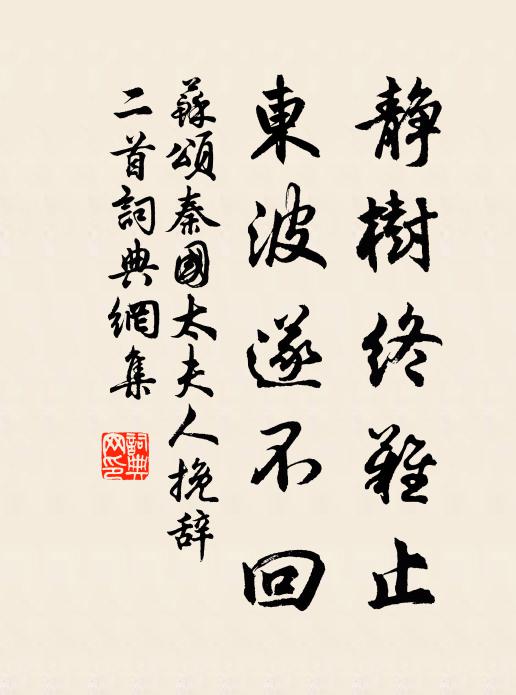 静樹終難止
東波遂不回
蘇頌秦國太夫人挽辞
二首詞典網集
詞典網印